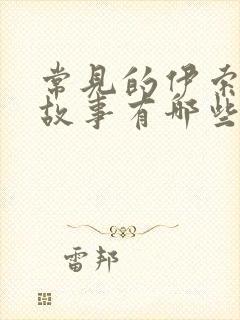 常见的伊索
故事有哪些
雷邦